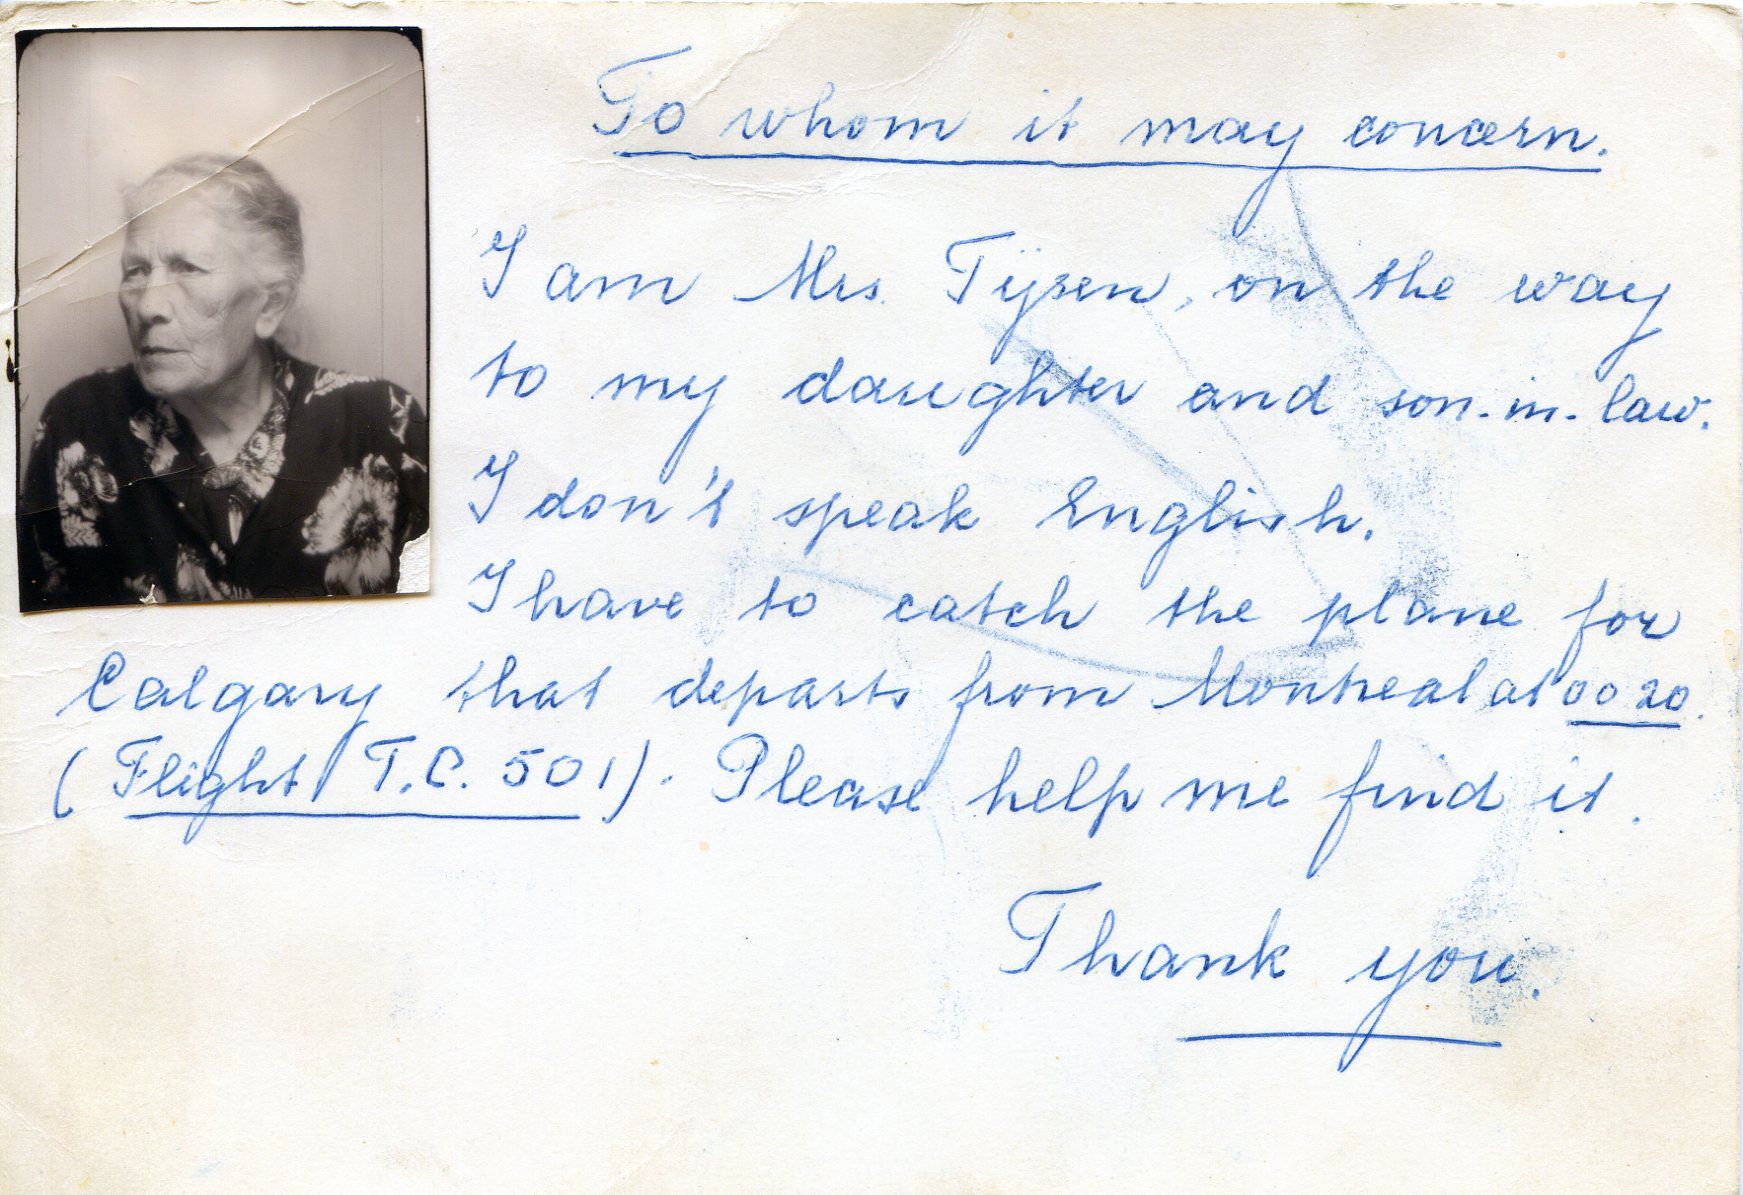 To whom it may concern.
I am Mrs. Tijsen, on the way
to my daughter and son-in-law.
I don't speak English.
I have to catch the plane for
Calgary that departs from Montreal at 00 20.
(Flight T.C. 501). Please help me find it.
Thank you.